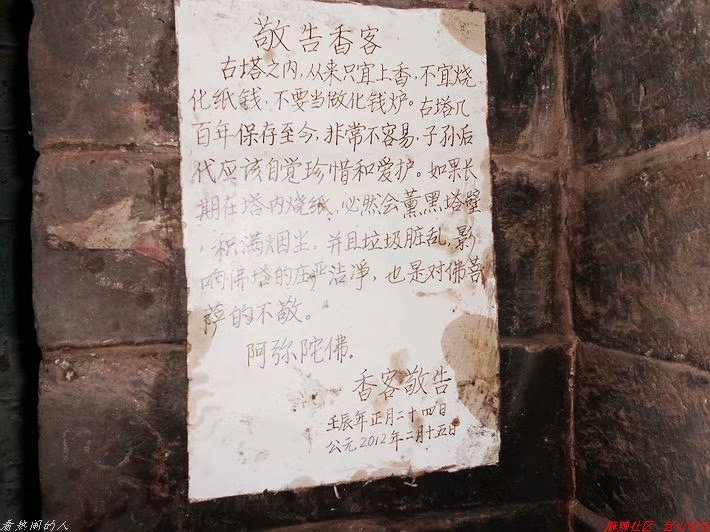 敬告香客
古塔之内,从来只宜上香,不宜烧
化纸钱,不要当做化钱炉。古塔几
百年保存至今,非常不容易,子孙后
代应该自觉珍惜和爱护。如果长
期在塔内烧纸,必然会薰黑塔壁
,积满烟尘。并且垃圾脏乱,影
响佛塔的庄严洁净,也是对佛菩
萨的不敬。
阿弥陀佛。
香客敬告
壬辰年正月二十四日
公元2012年二月十五日
看热闹的人
麻辣社区